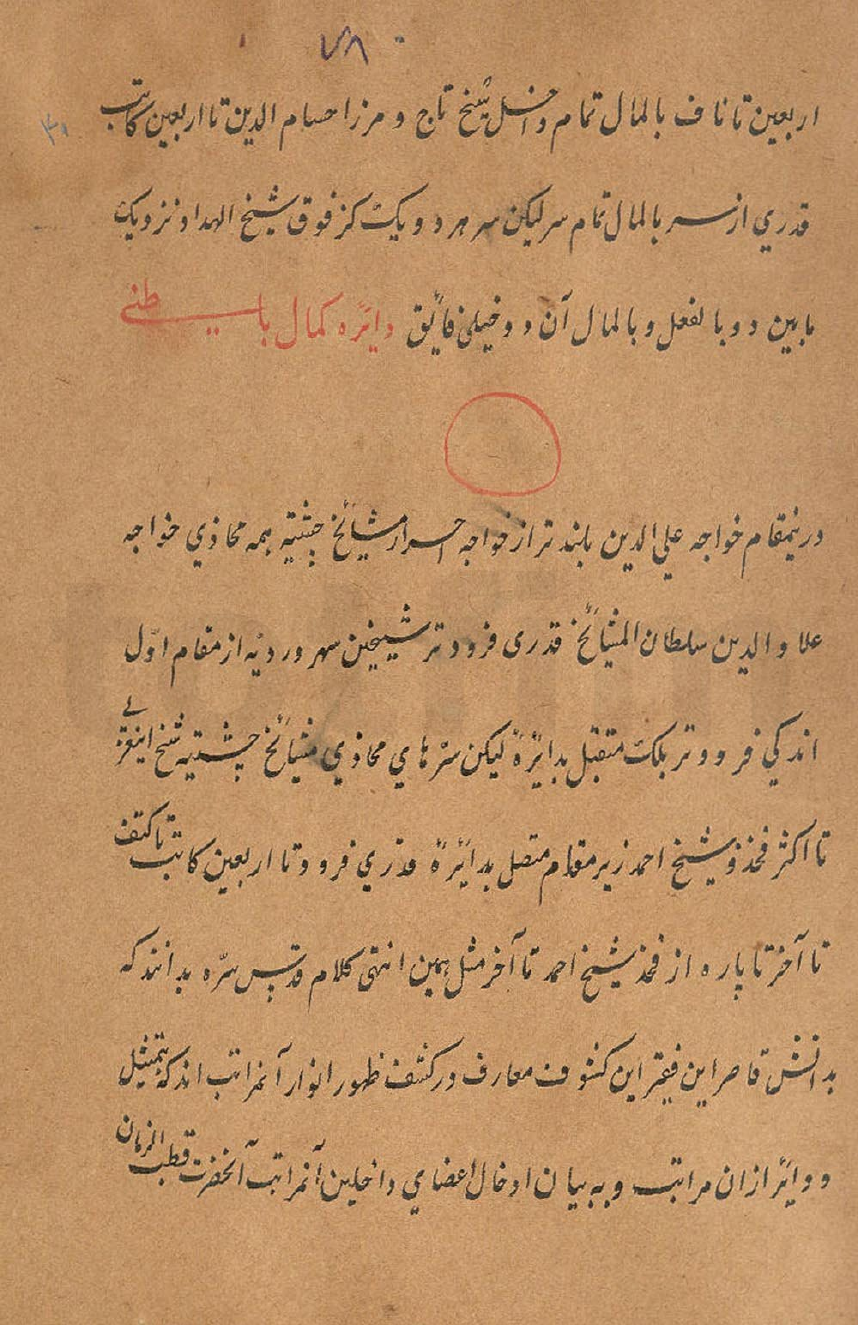 ۷۸
۳۹
اربعین تا ناف بالمال تمام داخل شیخ تاج و مرزا حسام الدین تا اربعین کاتب
قدری از سر بالمال تمام سر لیکن سر هر دو یک کز فوق شیخ الهداد نزدیک
مابین دو بالفعل و بالمال آن دو خیلی فایق دایره کمال باسیطنی
درینمقام خواجه علی الدین بلند تر از خواجه احرار مشائخ چشتیه همه محاذی خواجه
علاو الدین سلطان المشائخ قدری فرود تر شیخین سهروردیه از مقام اوّل
اندکی فرو و تر بلک متقبل بدایره لیکن سرهای محاذی مشائخ چشتیه شیخ
تا اکثر فخذ و شیخ احمد زیر مقام متصل بدایره قدری فرود تا اربعین کاتب تا کتف
تا آخر تا پاره از فخذ شیخ احمد تا آخر مثل همین انتهی کلام قدس سرّه بدانند که
بدانش قاصر این فقیر این کشوف معارف در کشف ظهور انوار آنمراتب اند که بتمثیل
دوائر ازان مراتب و به بیان ادخال اعضای داخلین آنمراتب آنحضرت قطب الزمان